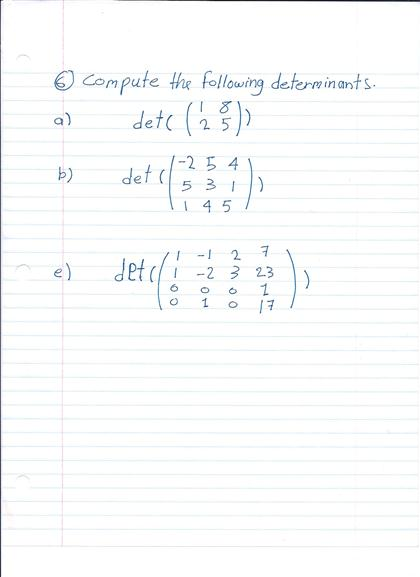 ⑥ Compute the following determinants.
a) det( ( 1 8
2 5 ) )
b) det ( ( -2 5 4
5 3 1
1 4 5 ) )
e) det ( ( 1 -1 2 7
1 -2 3 23
0 0 0 1
0 1 0 17 ) )